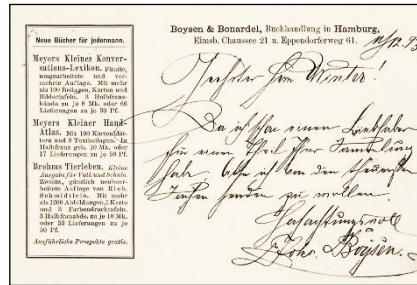 Neue Bücher für jedermann.
Meyers Kleines Konver-
sations-Lexikon. Fünfte,
umgearbeitete und ver-
mehrte Auflage. Mit mehr
als 100 Beilagen, Karten und
Bildertafeln. 3 Halbfranz-
bände zu je 8 Mk. oder 66
Lieferungen zu je 30 Pf.
Meyers Kleiner Hand-
Atlas. Mit 100 Kartenblät-
tern und 9 Textbeilagen. In
Halbfranz geb. 10 Mk. oder
17 Lieferungen zu je 50 Pf.
Brehms Tierleben. Kleine
Ausgabe für Volk und Schule.
Zweite, gänzlich neubear-
beitete Auflage von Rich.
Schmidtlein. Mit mehr
als 1200 Abbildungen, 1 Karte
und 3 Farbendrucktafeln.
3 Halbfranzbde. zu je 10 Mk.
oder 53 Lieferungen zu je
50 Pf.
Ausführliche Prospekte gratis.
Boysen & Bonardel, Buchhandlung in Hamburg,
Eimsb. Chaussee 21 u. Eppendorferweg 61.
Geehrter Herr Winter!
Da ich schon einen Liebhaber
für einen Theil Ihrer Sammlung
habe, bitte ich von den
senden zu wollen.
Hochachtungsvoll
Johs. Boysen.